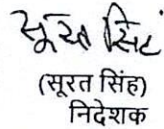 सूरत सिंह
(सूरत सिंह)
निदेशक